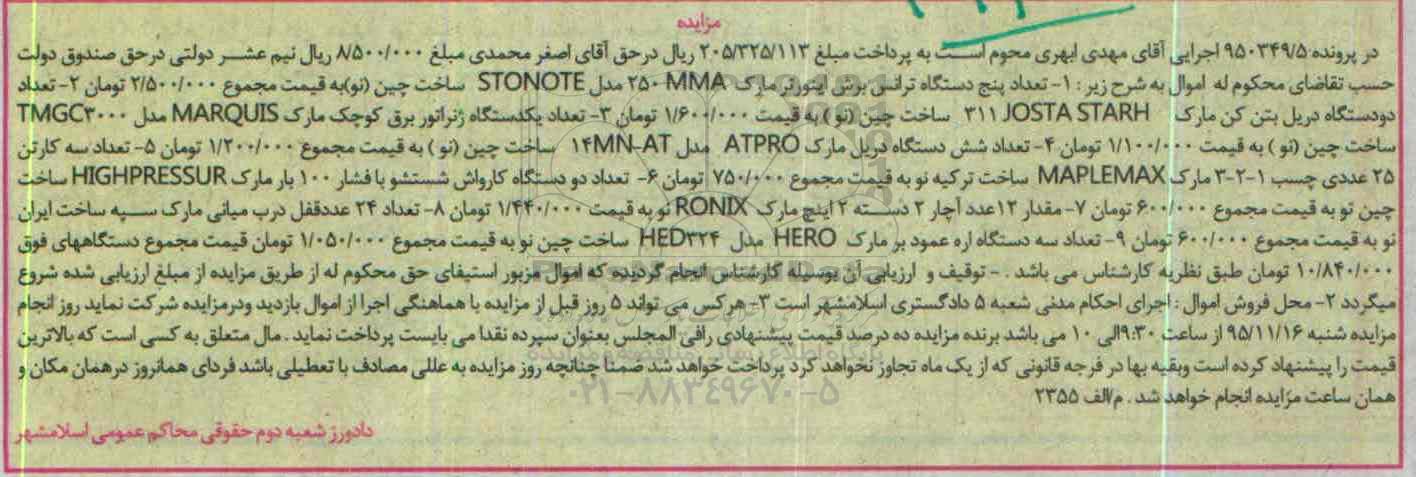 مزایده
در پرونده ۹۵۰۳۴۹/۵ اجرایی آقای مهدی ابهری محوم است به پرداخت مبلغ ۲۰۵/۳۲۵/۱۱۳ ریال درحق آقای اصغر محمدی مبلغ ۸/۵۰۰/۰۰۰ ریال نیم عشر دولتی درحق صندوق دولت
حسب تقاضای محکوم له اموال به شرح زیر : ۱- تعداد پنج دستگاه ترانس برش اینورتر مارک MMA ۲۵۰ مدل STONOTE ساخت چین (نو)به قیمت مجموع ۲/۵۰۰/۰۰۰ تومان ۲- تعداد
دودستگاه دریل بتن کن مارک JOSTA STARH ۳۱۱ ساخت چین (نو ) به قیمت ۱/۶۰۰/۰۰۰ تومان ۳- تعداد یکدستگاه ژنراتور برق کوچک مارک MARQUIS مدل TMGC۳۰۰۰
ساخت چین (نو ) به قیمت ۱/۱۰۰/۰۰۰ تومان ۴- تعداد شش دستگاه دریل مارک ATPRO مدل ۱۴MN-AT ساخت چین (نو ) به قیمت مجموع ۱/۲۰۰/۰۰۰ تومان ۵- تعداد سه کارتن
۲۵ عددی چسب ۱-۲-۳ مارک MAPLEMAX ساخت ترکیه نو به قیمت مجموع ۷۵۰/۰۰۰ تومان ۶- تعداد دو دستگاه کارواش شستشو با فشار ۱۰۰ بار مارک HIGHPRESSUR ساخت
چین نو به قیمت مجموع ۶۰۰/۰۰۰ تومان ۷- مقدار ۱۲عدد آچار ۲ دسته ۲ اینچ مارک RONIX نو به قیمت ۱/۴۴۰/۰۰۰ تومان ۸- تعداد ۲۴ عددقفل درب میانی مارک سپه ساخت ایران
نو به قیمت مجموع ۶۰۰/۰۰۰ تومان ۹- تعداد سه دستگاه اره عمود بر مارک HERO مدل HED۳۲۴ ساخت چین نو به قیمت مجموع ۱/۰۵۰/۰۰۰ تومان قیمت مجموع دستگاههای فوق
۱۰/۸۴۰/۰۰۰ تومان طبق نظریه کارشناس می باشد . - توقیف و ارزیابی آن بوسیله کارشناس انجام گردیده که اموال مزبور استیفای حق محکوم له از طریق مزایده از مبلغ ارزیابی شده شروع
میگردد ۲- محل فروش اموال : اجرای احکام مدنی شعبه ۵ دادگستری اسلامشهر است ۳- هرکس می تواند ۵ روز قبل از مزایده با هماهنگی اجرا از اموال بازدید ودرمزایده شرکت نماید روز انجام
مزایده شنبه ۹۵/۱۱/۱۶ از ساعت ۹:۳۰الی ۱۰ می باشد برنده مزایده ده درصد قیمت پیشنهادی رافی المجلس بعنوان سپرده نقدا می بایست پرداخت نماید . مال متعلق به کسی است که بالاترین
قیمت را پیشنهاد کرده است وبقیه بها در فرجه قانونی که از یک ماه تجاوز نخواهد کرد پرداخت خواهد شد ضمنا چنانچه روز مزایده به عللی مصادف با تعطیلی باشد فردای همانروز درهمان مکان و
همان ساعت مزایده انجام خواهد شد . م/الف ۲۳۵۵
۰۲۱-۸۸۳۴۹۶۷۰-۵
دادورز شعبه دوم حقوقی محاکم عمومی اسلامشهر